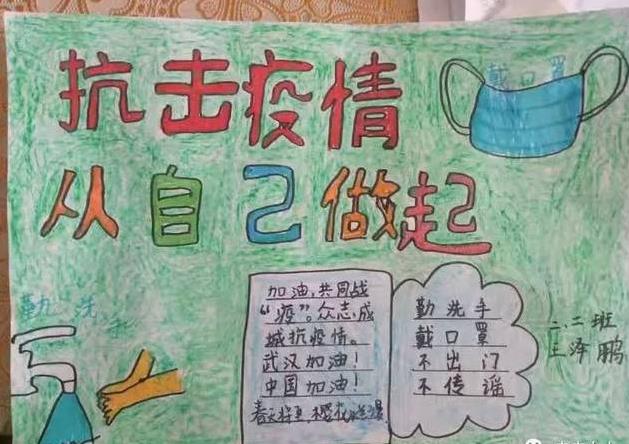 抗击疫情
戴口罩
从自己做起
勤洗手
加油,共同战
“疫”。众志成
城抗疫情。
武汉加油!
中国加油!
勤洗手
戴口罩
不出门
不传谣
二.二班
王泽鹏